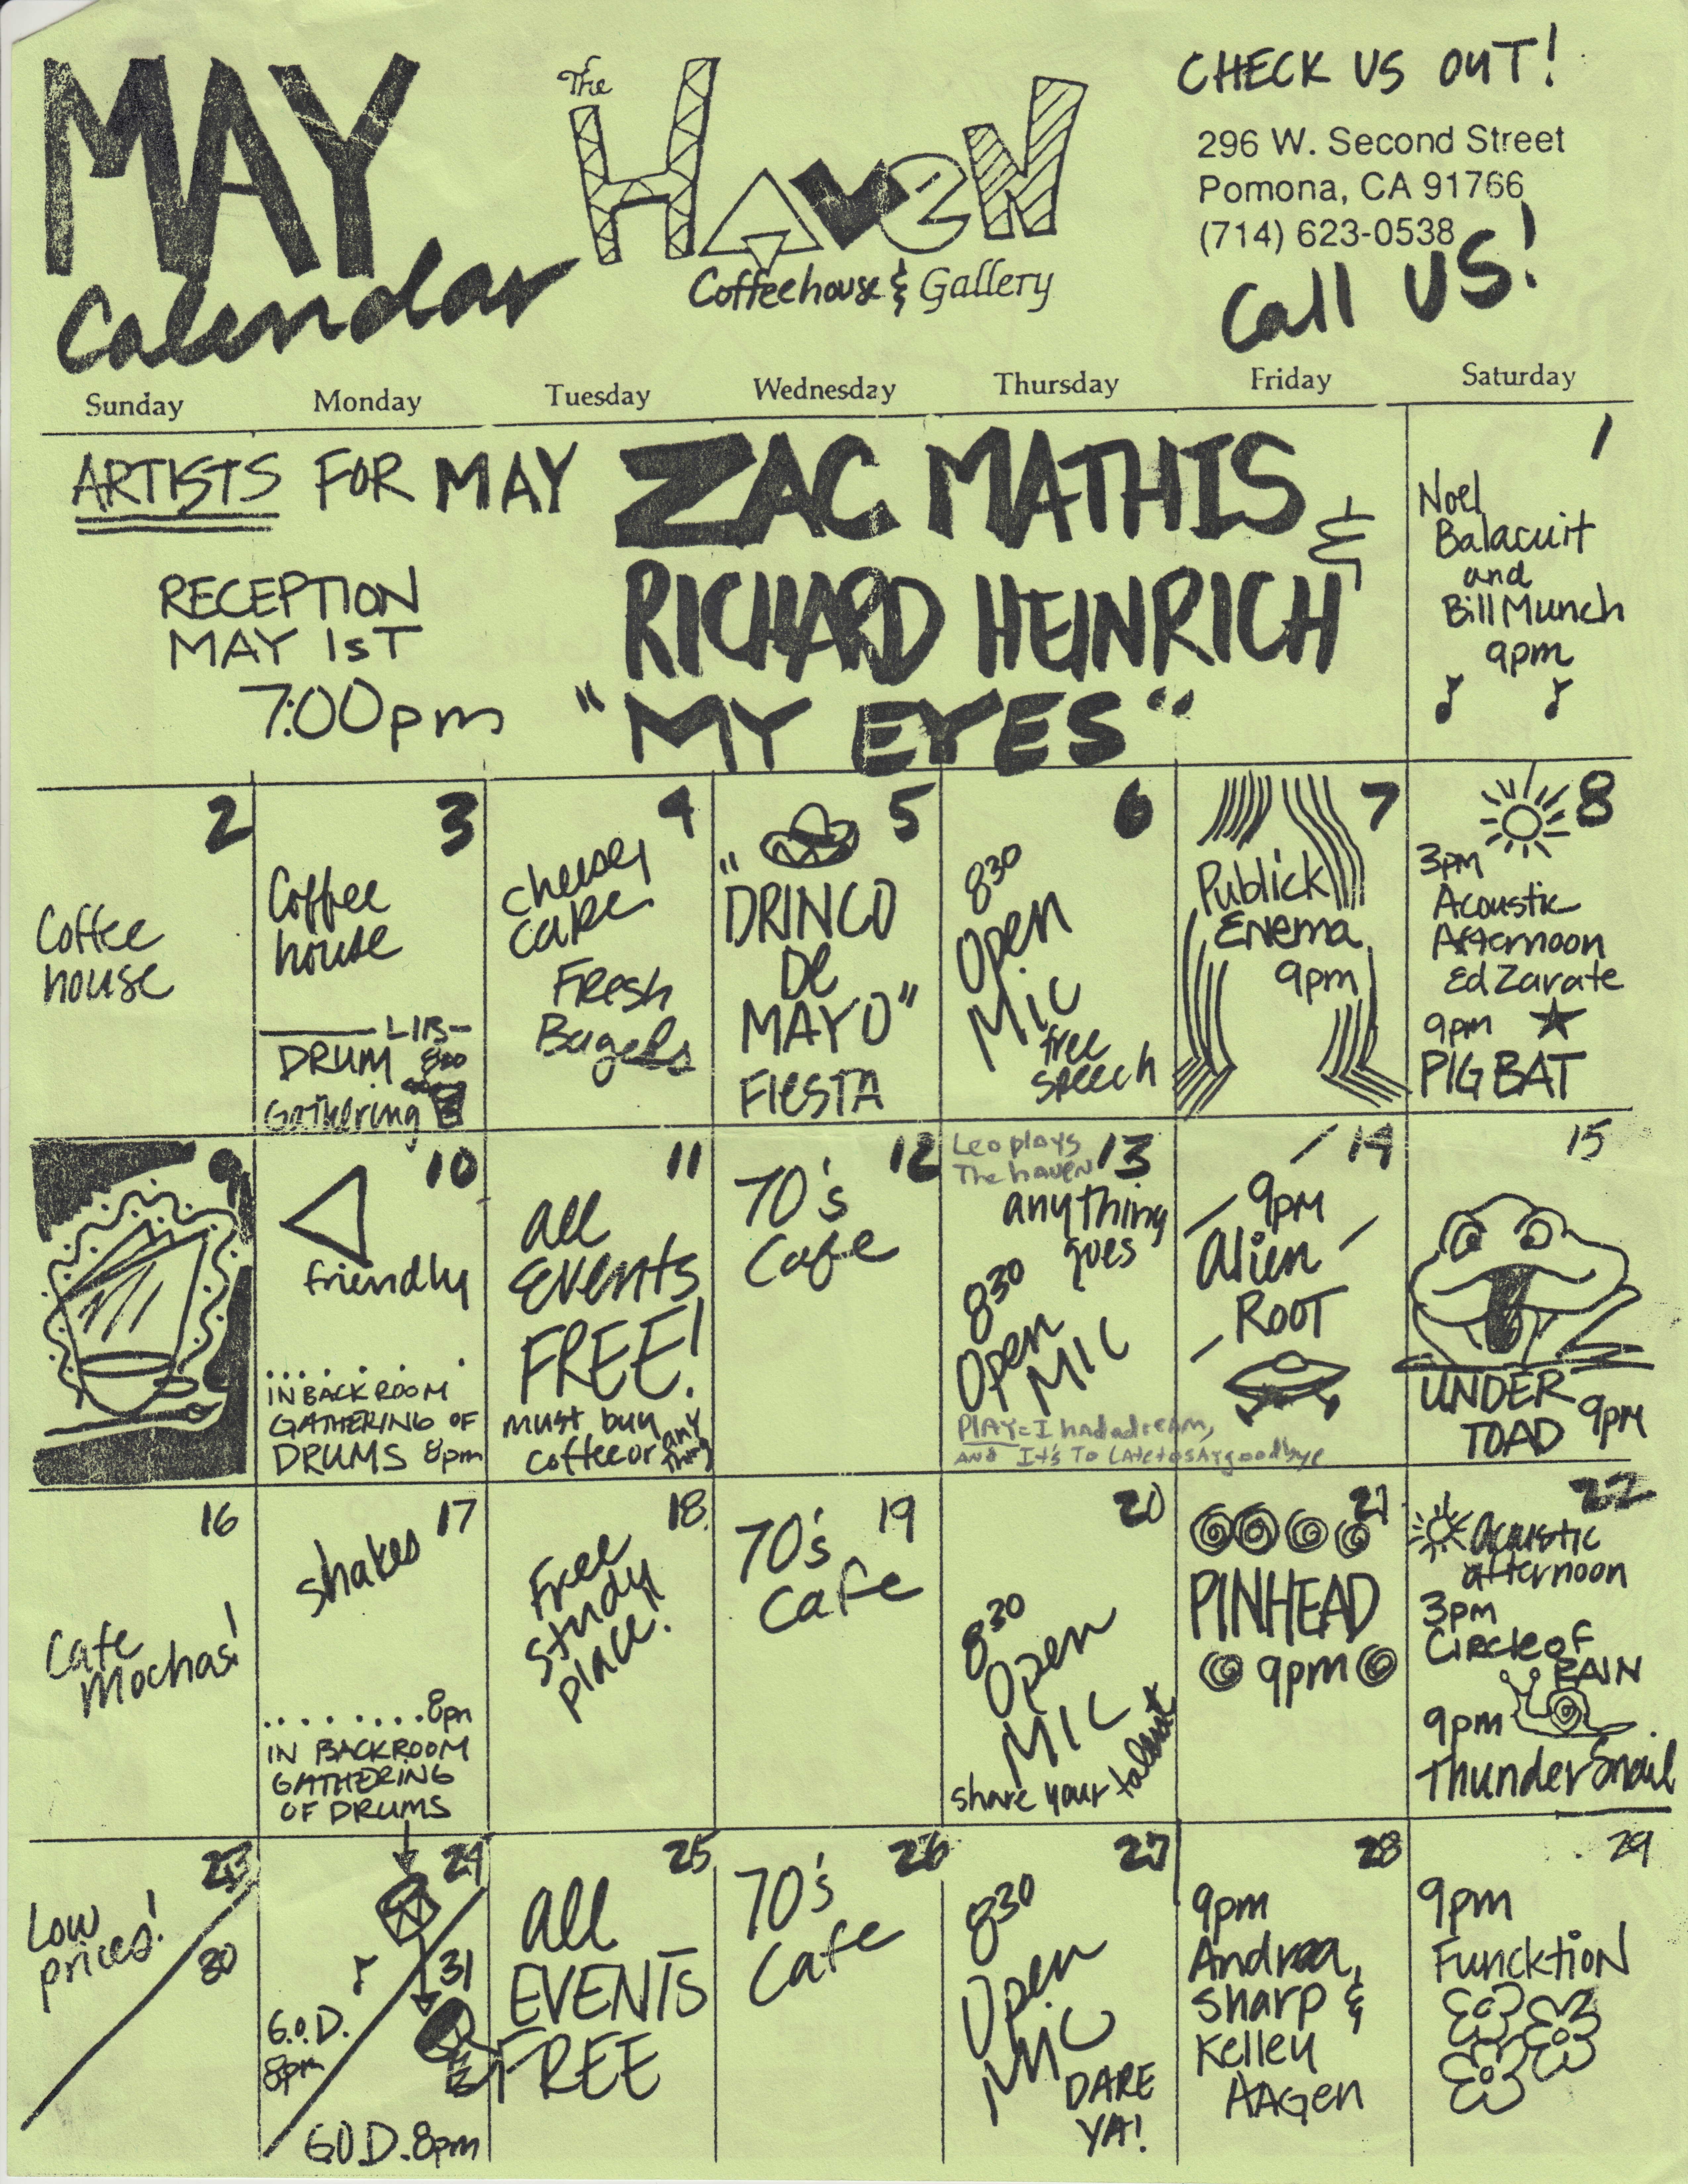 MAY
Calendar
The
HAVEN
Coffeehouse & Gallery
CHECK US OUT!
296 W. Second Street
Pomona, CA 91766
(714) 623-0538
Call US!
Sunday Monday Tuesday Wednesday Thursday Friday Saturday
ARTISTS FOR MAY
ZAC MATHIS &
RICHARD HEINRICH
"MY EYES"
RECEPTION
MAY 1ST
7:00pm
1
Noel
Balacuit
and
Bill Munch
9pm
2
Coffee
house
3
Coffee
house
LIB-
DRUM 8:00
Gathering
4
cheesey
cake
Fresh
Bagels
5
"DRINCO
De
MAYO"
FIESTA
6
830
Open
Mic
free
speech
7
Publick
Enema
9pm
8
3pm
Acoustic
Afternoon
Ed Zarate
9pm
PIG BAT
9
10
friendly
IN BACK ROOM
GATHERING OF
DRUMS 8pm
11
all
Events
FREE!
must buy
coffee or any
thing
12
70's
Cafe
Leo plays
The haven
13
anything
goes
830
Open
MIC
PLAY=I had a dream,
AND It's To LAte to sAy goodbye
14
9pm
Alien
ROOT
15
UNDER
TOAD 9pm
16
Cafe
Mochas!
17
shakes
8pm
IN BACKROOM
GATHERING
OF DRUMS
18
Free
study
place!
19
70's
Cafe
20
830
Open
MIC
share your talent
21
PINHEAD
9pm
22
Acoustic
afternoon
3pm
Circle of
PAIN
9pm
Thunder Snail
23
Low
prices!
30
24
G.O.D.
8pm
31
G.O.D. 8pm
25
all
EVENTS
FREE
26
70's
Cafe
27
830
Open
MIC
DARE
YA!
28
9pm
Andrea,
Sharp &
Kelley
AAGen
29
9pm
FuncktioN